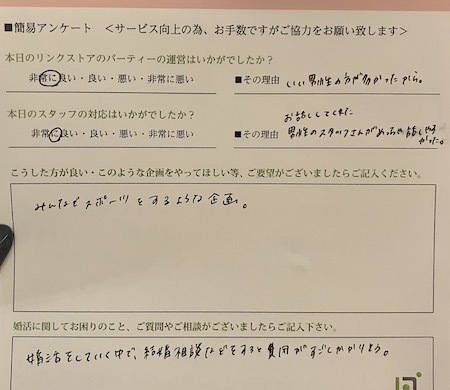 ■簡易アンケート <サービス向上の為、お手数ですがご協力をお願い致します>
本日のリンクストアのパーティーの運営はいかがでしたか?
非常に良い・良い・悪い・非常に悪い ■その理由 いい男性の方が多かったから。
本日のスタッフの対応はいかがでしたか?
お話ししてくれた
非常に良い・良い・悪い・非常に悪い ■その理由 男性のスタッフさんがめっちゃ話しやす
かった。
こうした方が良い・このような企画をやってほしい等、ご要望がございましたらご記入ください。
みんなでスポーツをするような企画。
婚活に関してお困りのこと、ご質問やご相談がございましたらご記入下さい。
婚活をしていく中で、結婚相談などをすると費用がすごいかかりそう。